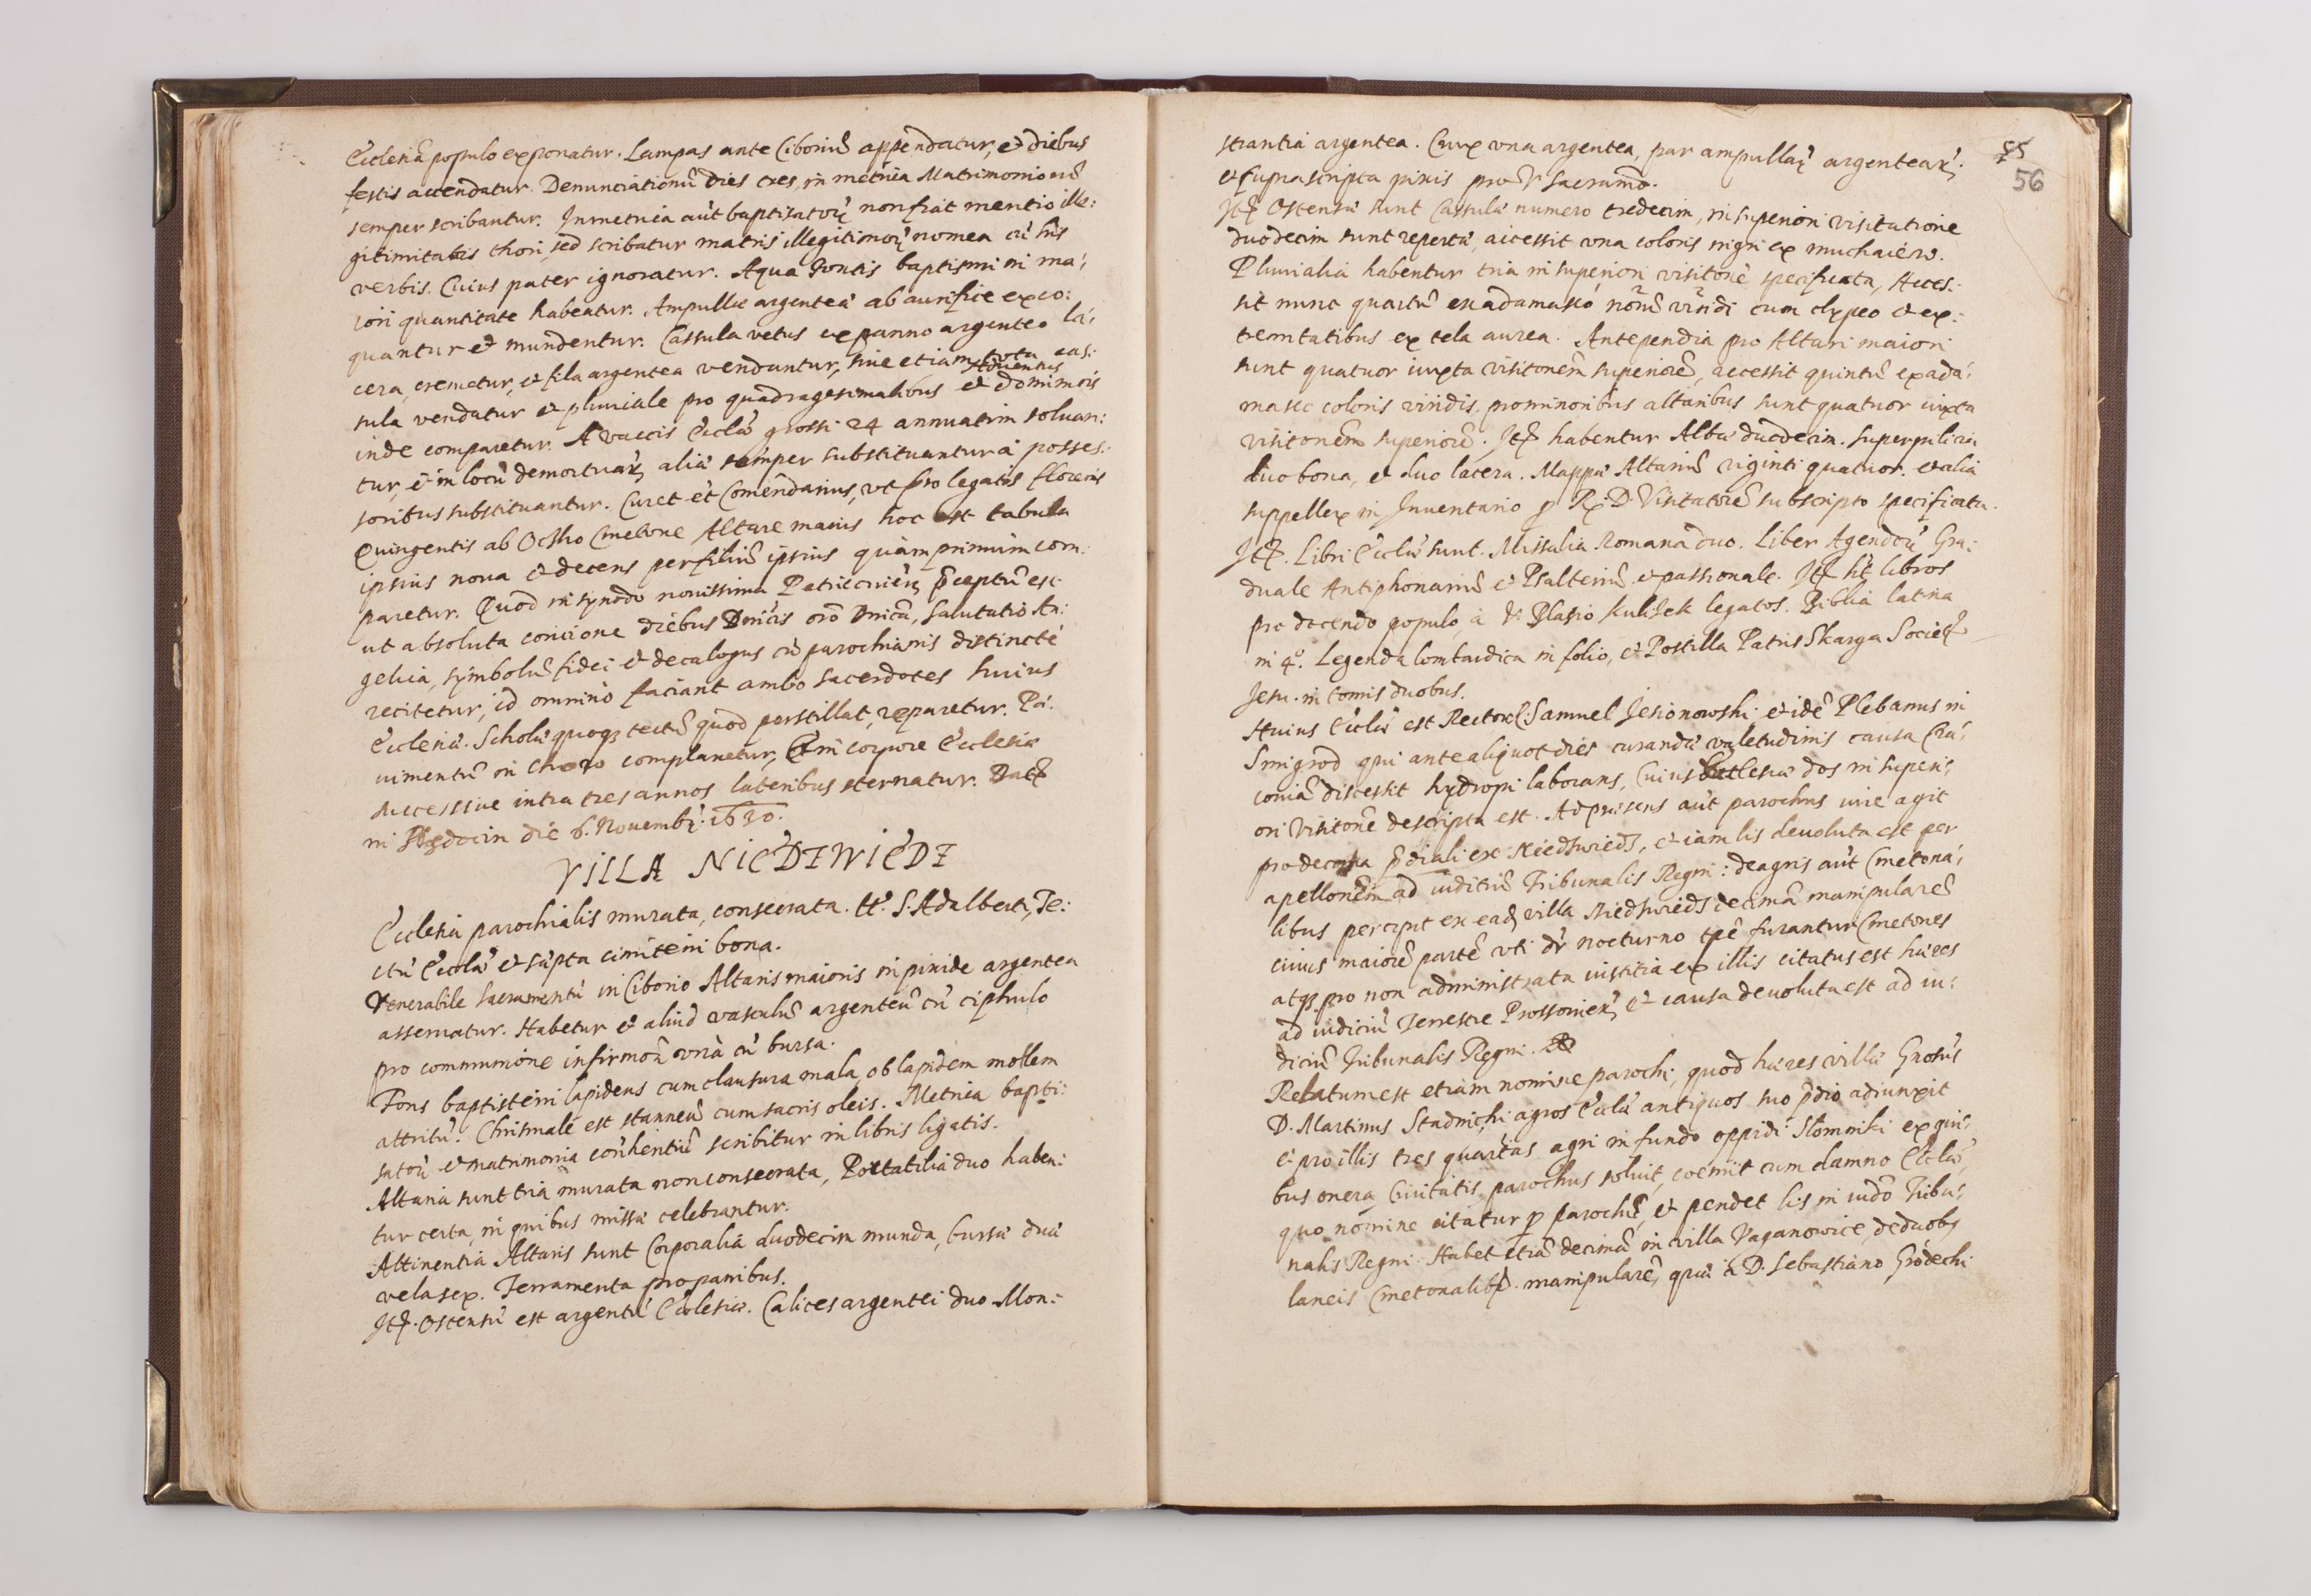 Ecclesiã populo exponatur. Lampas ante Ciboriũ appendatur, et diebus
festis accendatur. Denunciationũ dies tres, in metrica Matrimoniorũ
semper scribantur. In metrica aũt baptisatorũ non fiat mentio ille:
gitimitatis thori, sed scribatur matris illegitimorũ nomen cũ his
verbis. Cuius pater ignoratur. Aqua fontis baptismi in ma:
iori quantitate habeatur. Ampullæ argenteæ ab aurifice exco:
quantur et mundentur. Cassula vetus ex panno argenteo la:
cera, cremetur, et fila argentea vendantur, siue etiam tota cas:
sula vendatur et pluuiale pro quadragesimalibus et Aduentus dominicis
inde comparetur. A vaccis Eccłæ grossi 24 annuatim soluan:
tur, et in locũ demortuarũ aliæ semper substituantur à posses:
soribus substituantur. Curet et Comendarius, vt pro legatis florenis
Quingentis ab Ocsko Cmetone Altare maius hoc est tabula
ipsius noua et decens per filiũ ipsius quàm primùm com:
paretur. Quod in synodo nouissima Petricouieñ p̃ceptũ est
ut absoluta concione diebus Dnicis orõ Dnica, Salutatio An:
gelica, symbolũ fidei et decalogus cũ parochianis distinctè
recitetur, id omnino faciant ambo sacerdotes huius
Ecclesiæ. Scholæ quoq; tectũ quod perstillat, reparetur. Pa:
uimentũ in choro complanetur, et in corpore Ecclesiæ
successiue intra tres annos lateribus sternatur. Dat
in die 6. Nouemb: 1630.
VILLA NIEDZWIEDZ
Ecclesia parochialis murata, consecrata. tt. S. Adalberti, Te:
ctũ Eccłæ et sæpta cimiterii bona.
Venerabile Sacramentũ in Ciborio Altaris maioris in pixide argentea
asseruatur. Habetur et aliud vasculũ argenteũ cũ ciphulo
pro communione infirmorũ vnà cũ bursa.
Fons baptisterii lapideus cum clausura mala, ob lapidem mollem
attritũ. Chrismale est stanneũ cum sacris oleis. Metrica bapti:
satorũ et matrimonia contrahentiũ scribitur in libris ligatis.
Altaria sunt tria murata non consecrata, Portatilia duo haben:
tur certa, in quibus missæ celebrantur.
Attinentia Altaris sunt Corporalia duodecim munda, bursæ duæ
vela sex. Ferramenta pro panibus.
Itẽ. Ostensũ est argentũ Ecclesiæ. Calices argentei duo Mon:
55
56
strantia argentea. Crux vna argentea, par ampullarũ argentearũ.
et suprascripta pixis pro V. Sacramto.
Itẽ Ostensæ sunt Cassulæ numero tredecim, in superiori visitatione
duodecim sunt repertæ, accessit vna coloris nigri ex muchaiero.
Pluuialia habentur tria in superiori visitone specificata, Acces:
sit nunc quartũ ex adamasco nouũ viridi cum clypeo et ex:
tremitatibus ex tela aurea. Antependia pro Altari maiori
sunt quatuor iuxta visitonem superiorẽ, accessit quintũ ex ada:
masco coloris viridis, pro minoribus altaribus sunt quatuor iuxta
visitonem superiorẽ. Itẽ habentur Albæ duodecim. Superpelicia
duo bona, et duo lacera. Mappæ Altariũ viginti quatuor. et alia
suppellex in Inuentario p R. D. Visitatorẽ subscripto specificata.
Itẽ. Libri Eccłæ sunt. Missalia Romana duo. Liber Agendorũ Gra:
duale Antiphonariũ et Psalteriũ et passionale. Itẽ hẽt libros
pro docendo populo à V. Blasio Kulizek legatos. Biblia latina
in 4º. Legenda lombardica in folio, et Postilla Patris Skarga Societ
Jesu in tomis duobus.
Huius Eccłæ est Rector Samuel Jesionowski et idẽ Plebanus in
Smigrod qui ante aliquot dies curandæ valetudinis causa Cra:
couiã discessit hydropi laborans, Cuius Ecclesiæ dos in superi:
ori visitone descripta est. Ad præsens aũt parochus iure agit
pro decima p̃diali ex Niedswiedz, et iam lis deuoluta est per
apellonem ad iuditiũ Tribunalis Regni: de agris aũt Cmetona:
libus percipit ex eadẽ villa Niedswiedz decimã manipularẽ
cuius maiorẽ partẽ vti dr nocturno tpẽ furantur Cmetones
atq; pro non administrata iustitia ex illis citatus est hæres
ad iudiciũ Terrestre Prossouieñ, et causa deuoluta est ad iu:
diciũ Tribunalis Regni.
Relatum est etiam nomine parochi, quod hæres villæ Gnosus
D. Martinus Stadnicki agros Eccłæ antiquos suo p̃dio adiunxit
et pro illis tres quartas agri in fundo oppidi Słomniki ex qui:
bus onera Ciuitatis parochus soluit, coemit cum damno Eccłæ,
quo nomine citatur p parochũ, et pendet lis in iudo Tribu:
nalis Regni. Habet etiã decimã in villa Vaganowice, de duobus
laneis Cmetonalib. manipularẽ, quæ à D. Sebastiano Grodecki